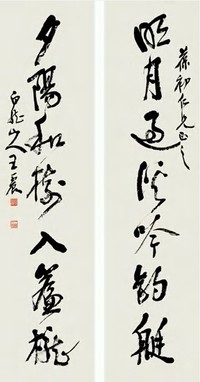 葆初仁兄正之
明月還從吟釣艇
夕陽和樹入簾櫳
白龍山人王震